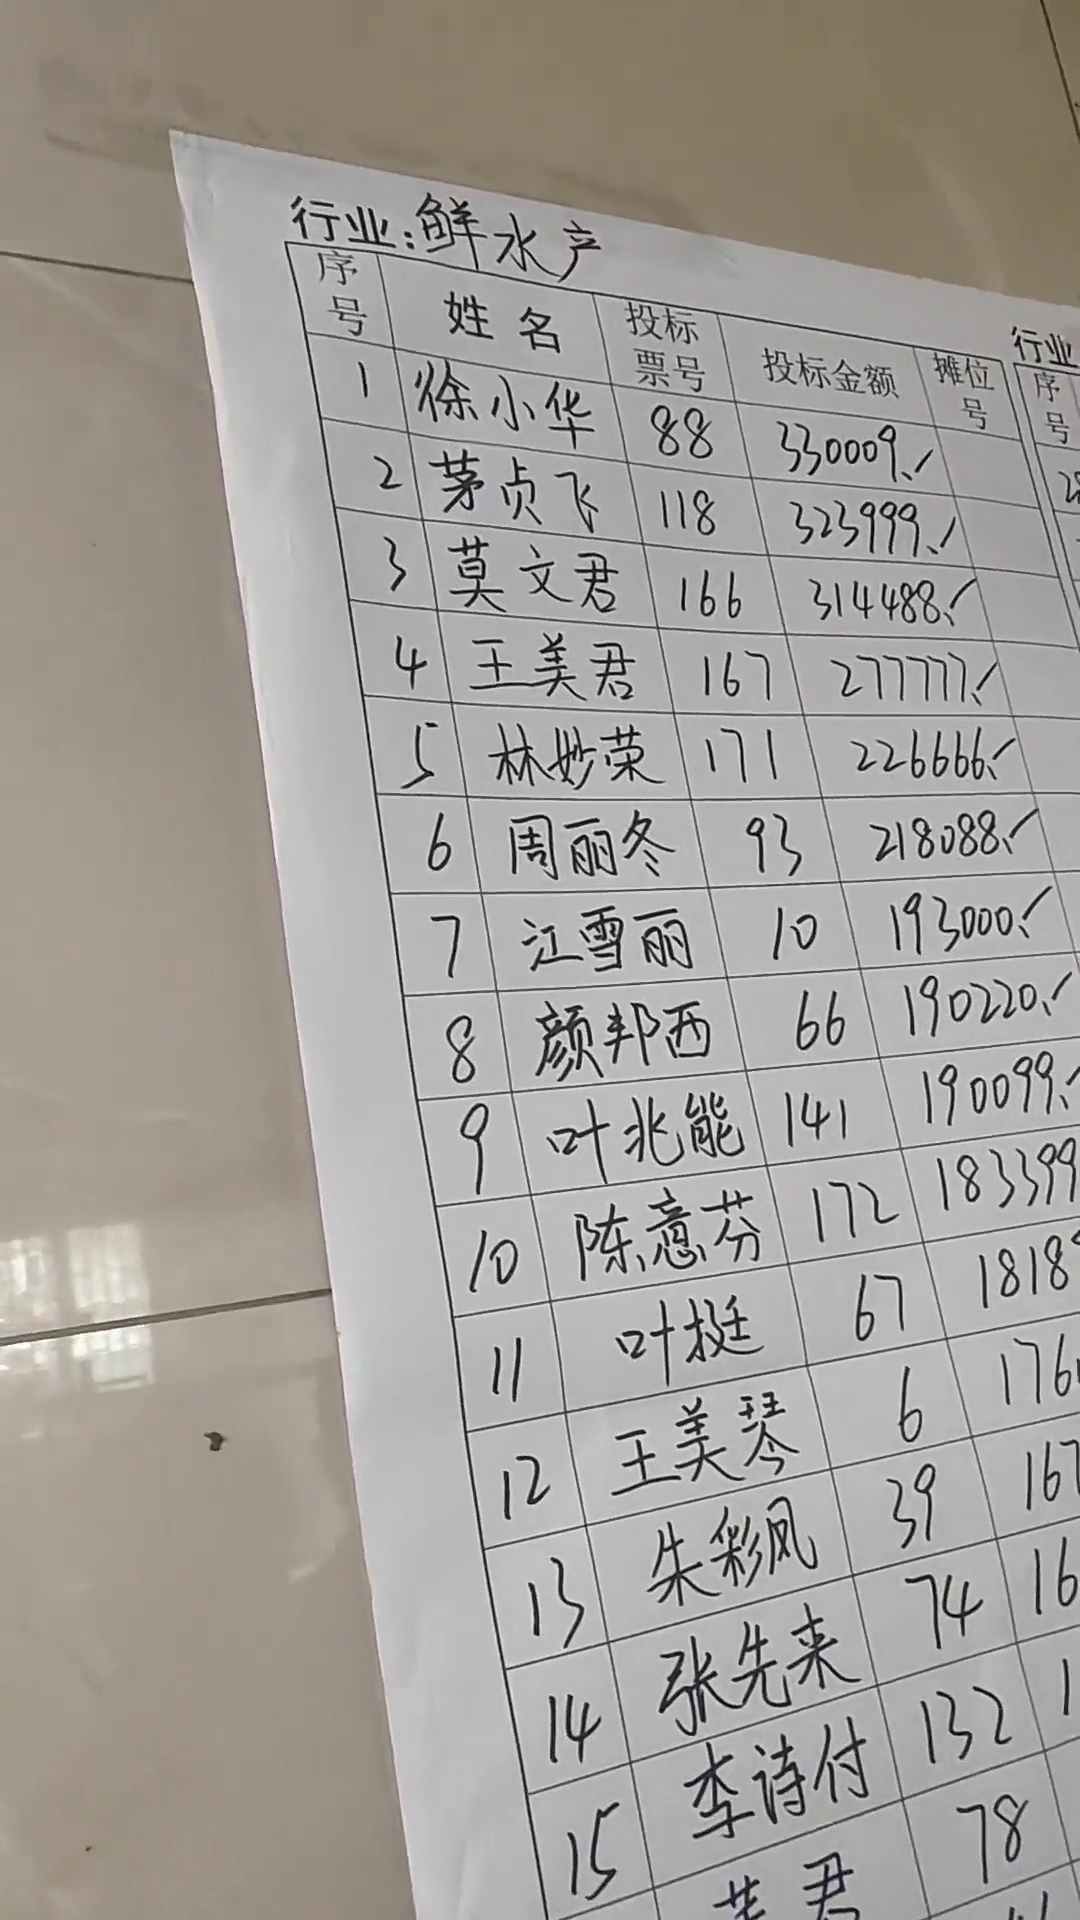 行业:鲜水产
序号 姓名 投标票号 投标金额 摊位号
1 徐小华 88 330009.✓
2 茅贞飞 118 323999.✓
3 莫文君 166 314488.✓
4 王美君 167 277777.✓
5 林妙荣 171 226666.✓
6 周丽冬 93 218088.✓
7 江雪丽 10 193000.✓
8 颜邦西 66 190220.✓
9 叶兆能 141 190099.✓
10 陈意芬 172 183399
11 叶挺 67 1818
12 王美琴 6 176
13 朱彩凤 39 167
14 张先来 74 16
15 李诗付 132 1
君 78
行业
序号